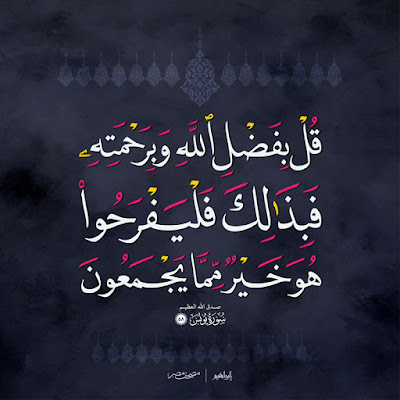 قُلْ بِفَضْلِ ٱللَّهِ وَبِرَحْمَتِهِۦ
فَبِذَٰلِكَ فَلْيَفْرَحُوا۟
هُوَ خَيْرٌ مِّمَّا يَجْمَعُونَ
صدق الله العظيم
سُورَةُ يُونُسَ ٥٨
إبراهيم | مصحف مصر